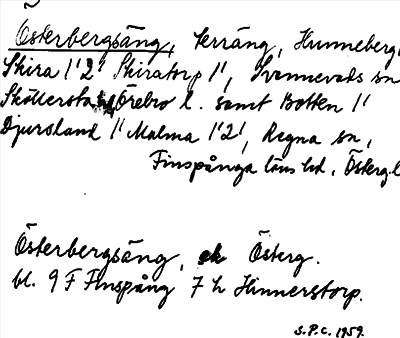 Österbergsäng, Terräng, Hunneberg,
Skira 1'2' Skiratorp 1', Svennevads sn
Sköllersta Örebro l. samt Botten 1'
Djursland 1' Malma 1'2', Regna sn,
Finspånga läns hd, Österg.l
Österbergsäng, ek Österg.
bl. 9 F Finspång 7 h Hinnerstorp.
S.P.C. 1959.